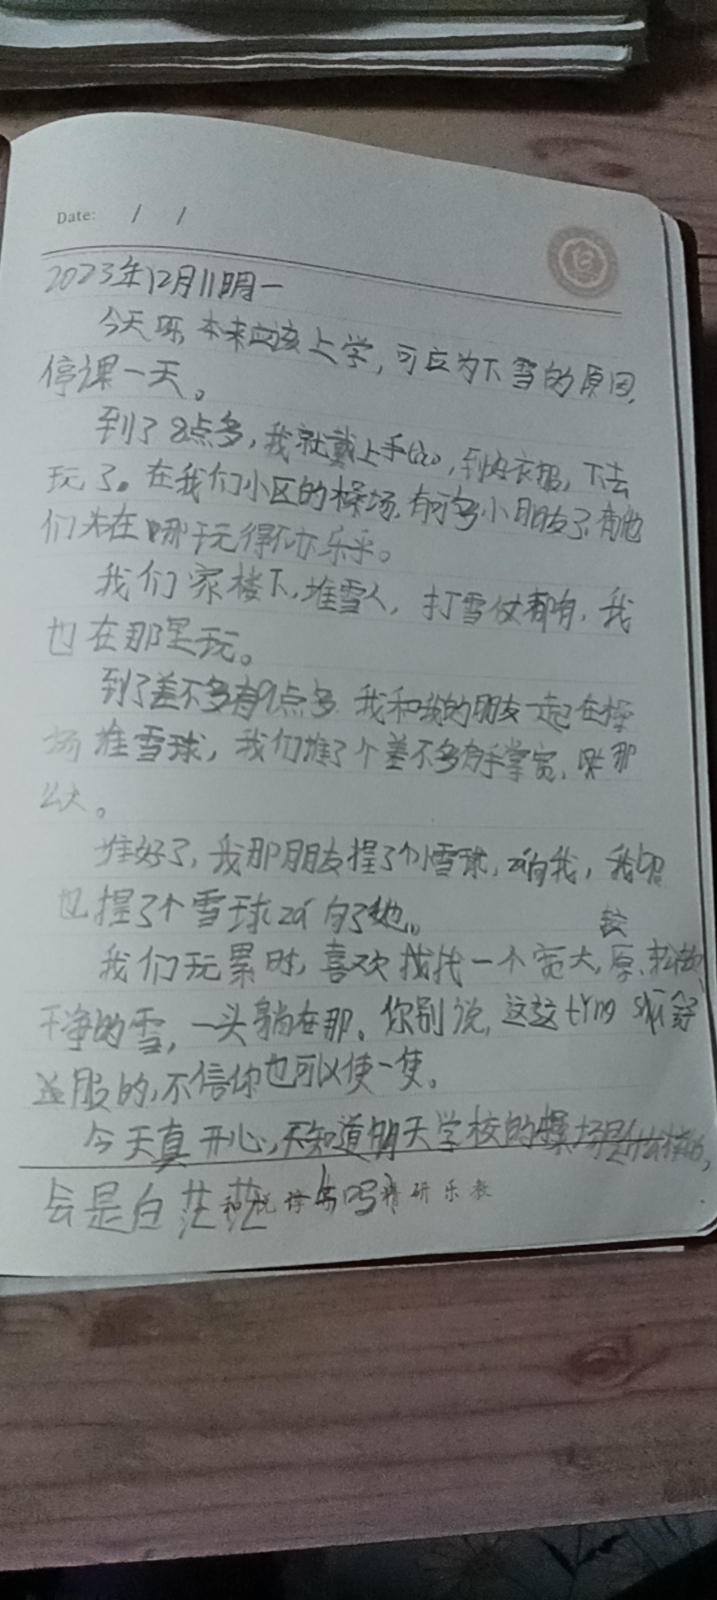 Date: / /
2023年12月11日周一
今天呀,本来应该上学,可应为下雪的原因,
停课一天。
到了8点多,我就戴上手,衣服,下去
玩了。在我们小区的操场,有许多小朋友了,他
们在哪玩得不亦乐乎。
我们家楼下,堆雪人,打雪仗都有,我
也在那里玩。
到了差不多有9点多,我和我的朋友一起在操
场堆雪球,我们堆了个差不多有手掌宽,那
么大。
堆好了,我那朋友捏了个小雪球,zá向我,我
也捏了个雪球zá向了她。
我们玩累时,喜欢找找一个宽大,厚,
干净的雪,一头躺在那。你别说,这这tǐng shū舒
服的,不信你也可以使一使。
今天真开心,不知道明天学校的操场是什么样的,
会是白茫茫的吗?
和悦 精研乐教